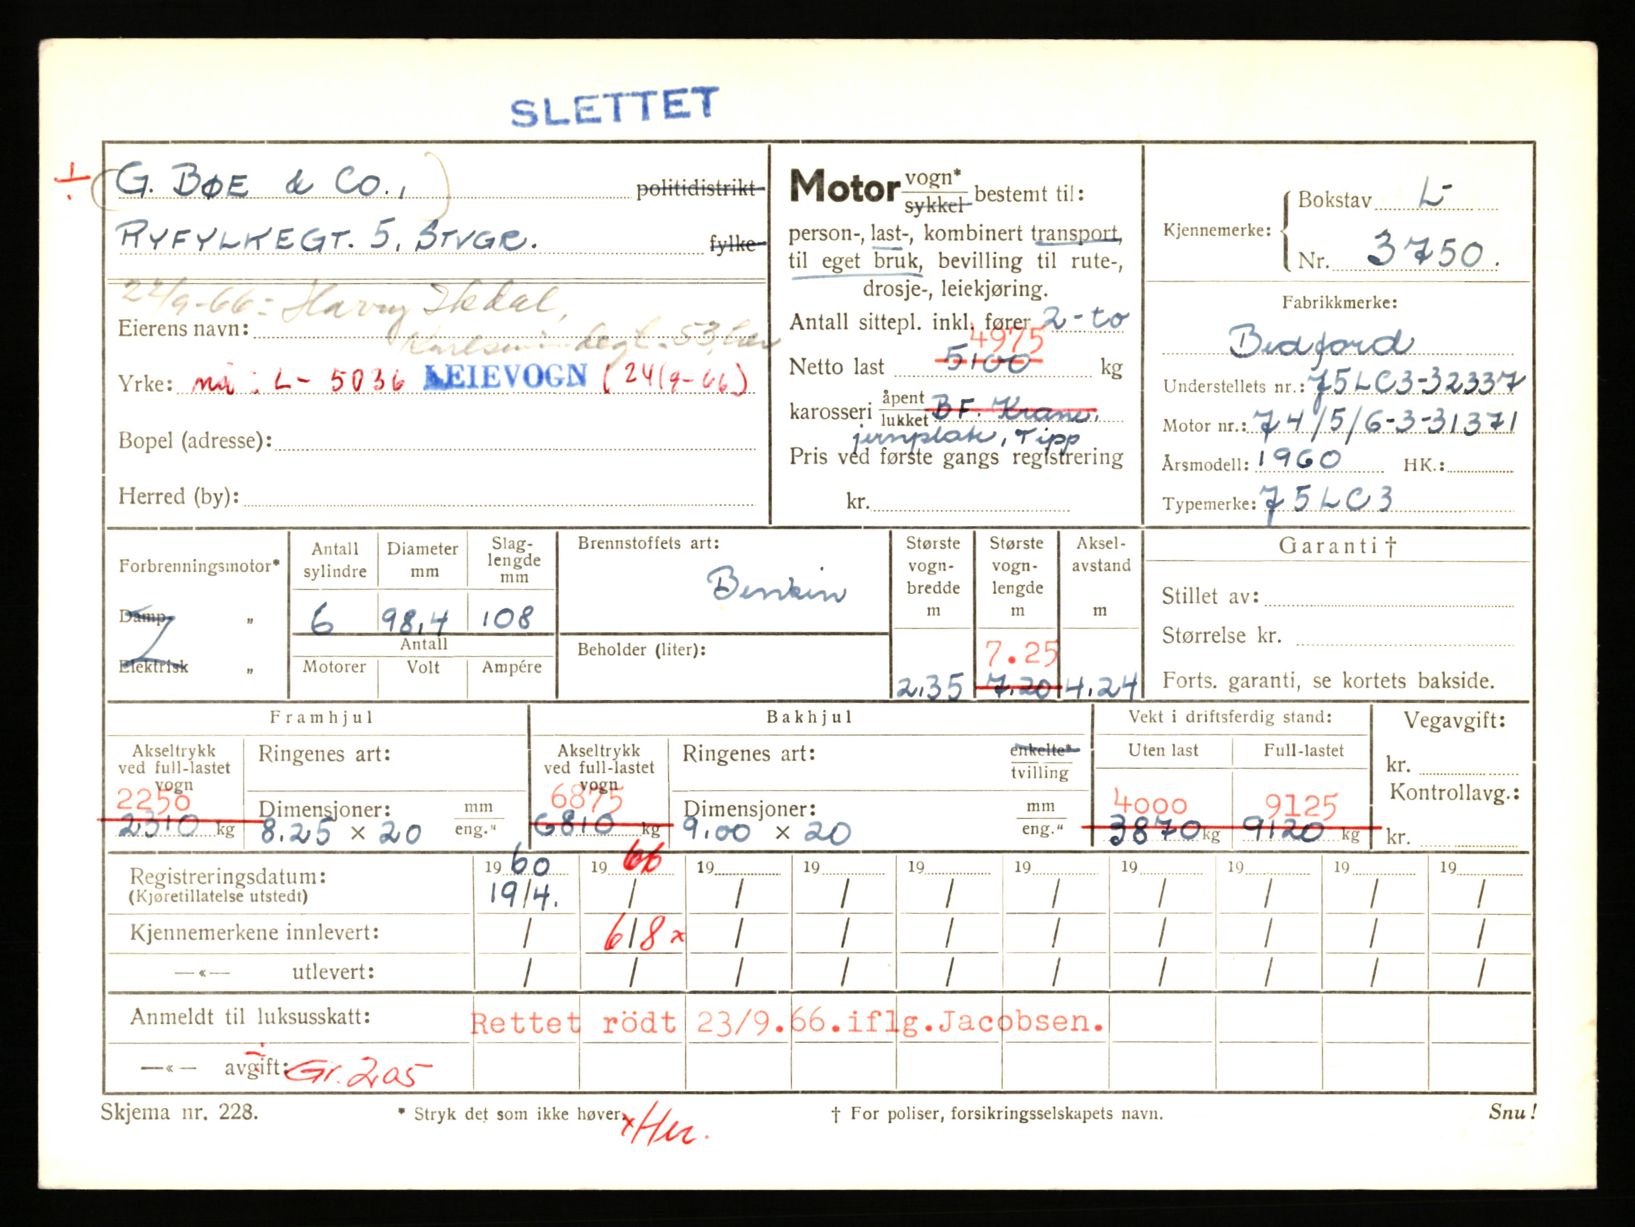 SLETTET
÷ (G. BØE & CO., ) politidistrikt
RYFYLKEGT. 5, STVGR. fylke
24/9-66: Harry
Eierens navn:
53,
Yrke: nå: L- 5036 LEIEVOGN (24/9-66)
Bopel (adresse):
Herred (by):
Motor vogn* sykkel bestemt til:
person-, last-, kombinert transport,
til eget bruk, bevilling til rute-,
drosje-, leiekjøring.
Antall sittepl. inkl. fører 2-to
4975
Netto last 5100 kg
karosseri åpent lukket BF. Krane,
jernplatt, Tipp
Pris ved første gangs registrering
kr.
Kjennemerke: Bokstav L-
Nr. 3750.
Fabrikkmerke:
Bedford
Understellets nr.: 75LC3-32337
Motor nr.: 74/5/6-3-31371
Årsmodell: 1960 HK.:
Typemerke: 75LC3
Forbrenningsmotor*
Damp „
Elektrisk „
Antall sylindre
6
Diameter mm
98,4
Slag-lengde mm
108
Antall
Motorer Volt Ampére
Brennstoffets art:
Bensin
Beholder (liter):
Største vogn-bredde m
2.35
Største vogn-lengde m
7.25
7.20
Aksel-avstand m
4.24
Garanti †
Stillet av:
Størrelse kr.
Forts. garanti, se kortets bakside.
Framhjul
Akseltrykk ved full-lastet vogn
2250
2310 kg
Ringenes art:
Dimensjoner: mm eng."
8.25 × 20
Bakhjul
Akseltrykk ved full-lastet vogn
6875
6810 kg
Ringenes art: enkelte* tvilling
Dimensjoner: mm eng."
9.00 × 20
Vekt i driftsferdig stand:
Uten last Full-lastet
4000 9125
3870 kg 9120 kg
Vegavgift:
kr.
Kontrollavg.:
kr.
Registreringsdatum: 19 60 19 66 19 19 19 19 19 19 19 19
(Kjøretillatelse utstedt) 19/4. / / / / / / / / /
Kjennemerkene innlevert: / 6/8 x / / / / / / / /
—«— utlevert: / / / / / / / / / /
Anmeldt til luksusskatt: Rettet rödt 23/9.66.iflg.Jacobsen.
—«— avgift: Gr. 205
Skjema nr. 228. * Stryk det som ikke høver. † For poliser, forsikringsselskapets navn. Snu!
x Her.